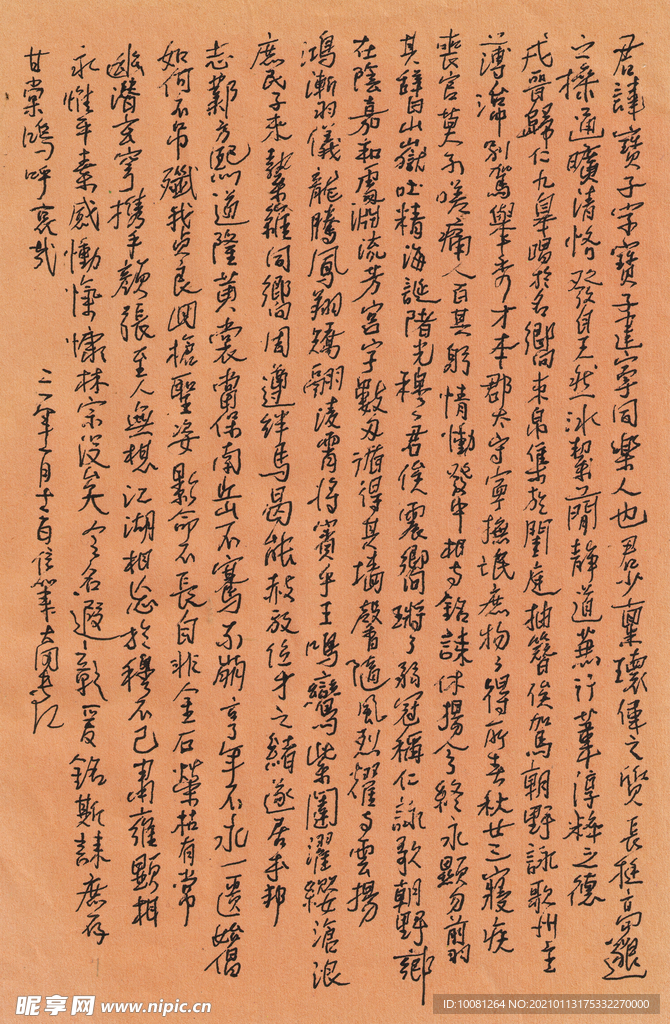 君諱寶子字寶子建寧同樂人也君少稟瓌偉之質長挺高邈
之操通曠清恪發自天然冰絜簡靜道兼行葦淳粹之德
戎晉歸仁九皋唱於名響束帛集於閨庭抽簪俟駕朝野詠歌州主
薄治中別駕舉秀才本郡太守寧撫氓庶物々得所春秋廿三寢疾
喪官莫不嗟痛人百其躬情慟發中相与銘誄休揚令終永顯勿翦
其辭曰山嶽吐精海誕陼光穆々君侯震響鏘々弱冠稱仁詠歌朝野鄉
在陰嘉和處淵流芳宮宇數刃循得其墻馨隨風烈耀与雲揚
鴻漸羽儀龍騰鳳翔矯翮凌霄將賓乎王鳴鸞紫闥濯纓滄浪
庶民子来縶維同嚮周遵絆馬曷能赦放位才之緒遂居本邦
志鄴方熙道隆黃裳當保南岳不騫不崩享年不永一匱始倡
如何不弔殲我貞良回槍聖姿影命不長自非金石榮枯有常
幽潛玄穹攜手顏張至人無想江湖相忘於穆不已肅雍顯相
永惟平素感慟愾慷林宗沒矣令名遐彰爰銘斯誄庶存
甘棠嗚呼哀哉
昵享网 www.nipic.cn
ID:10081264 NO:20210113175332270000